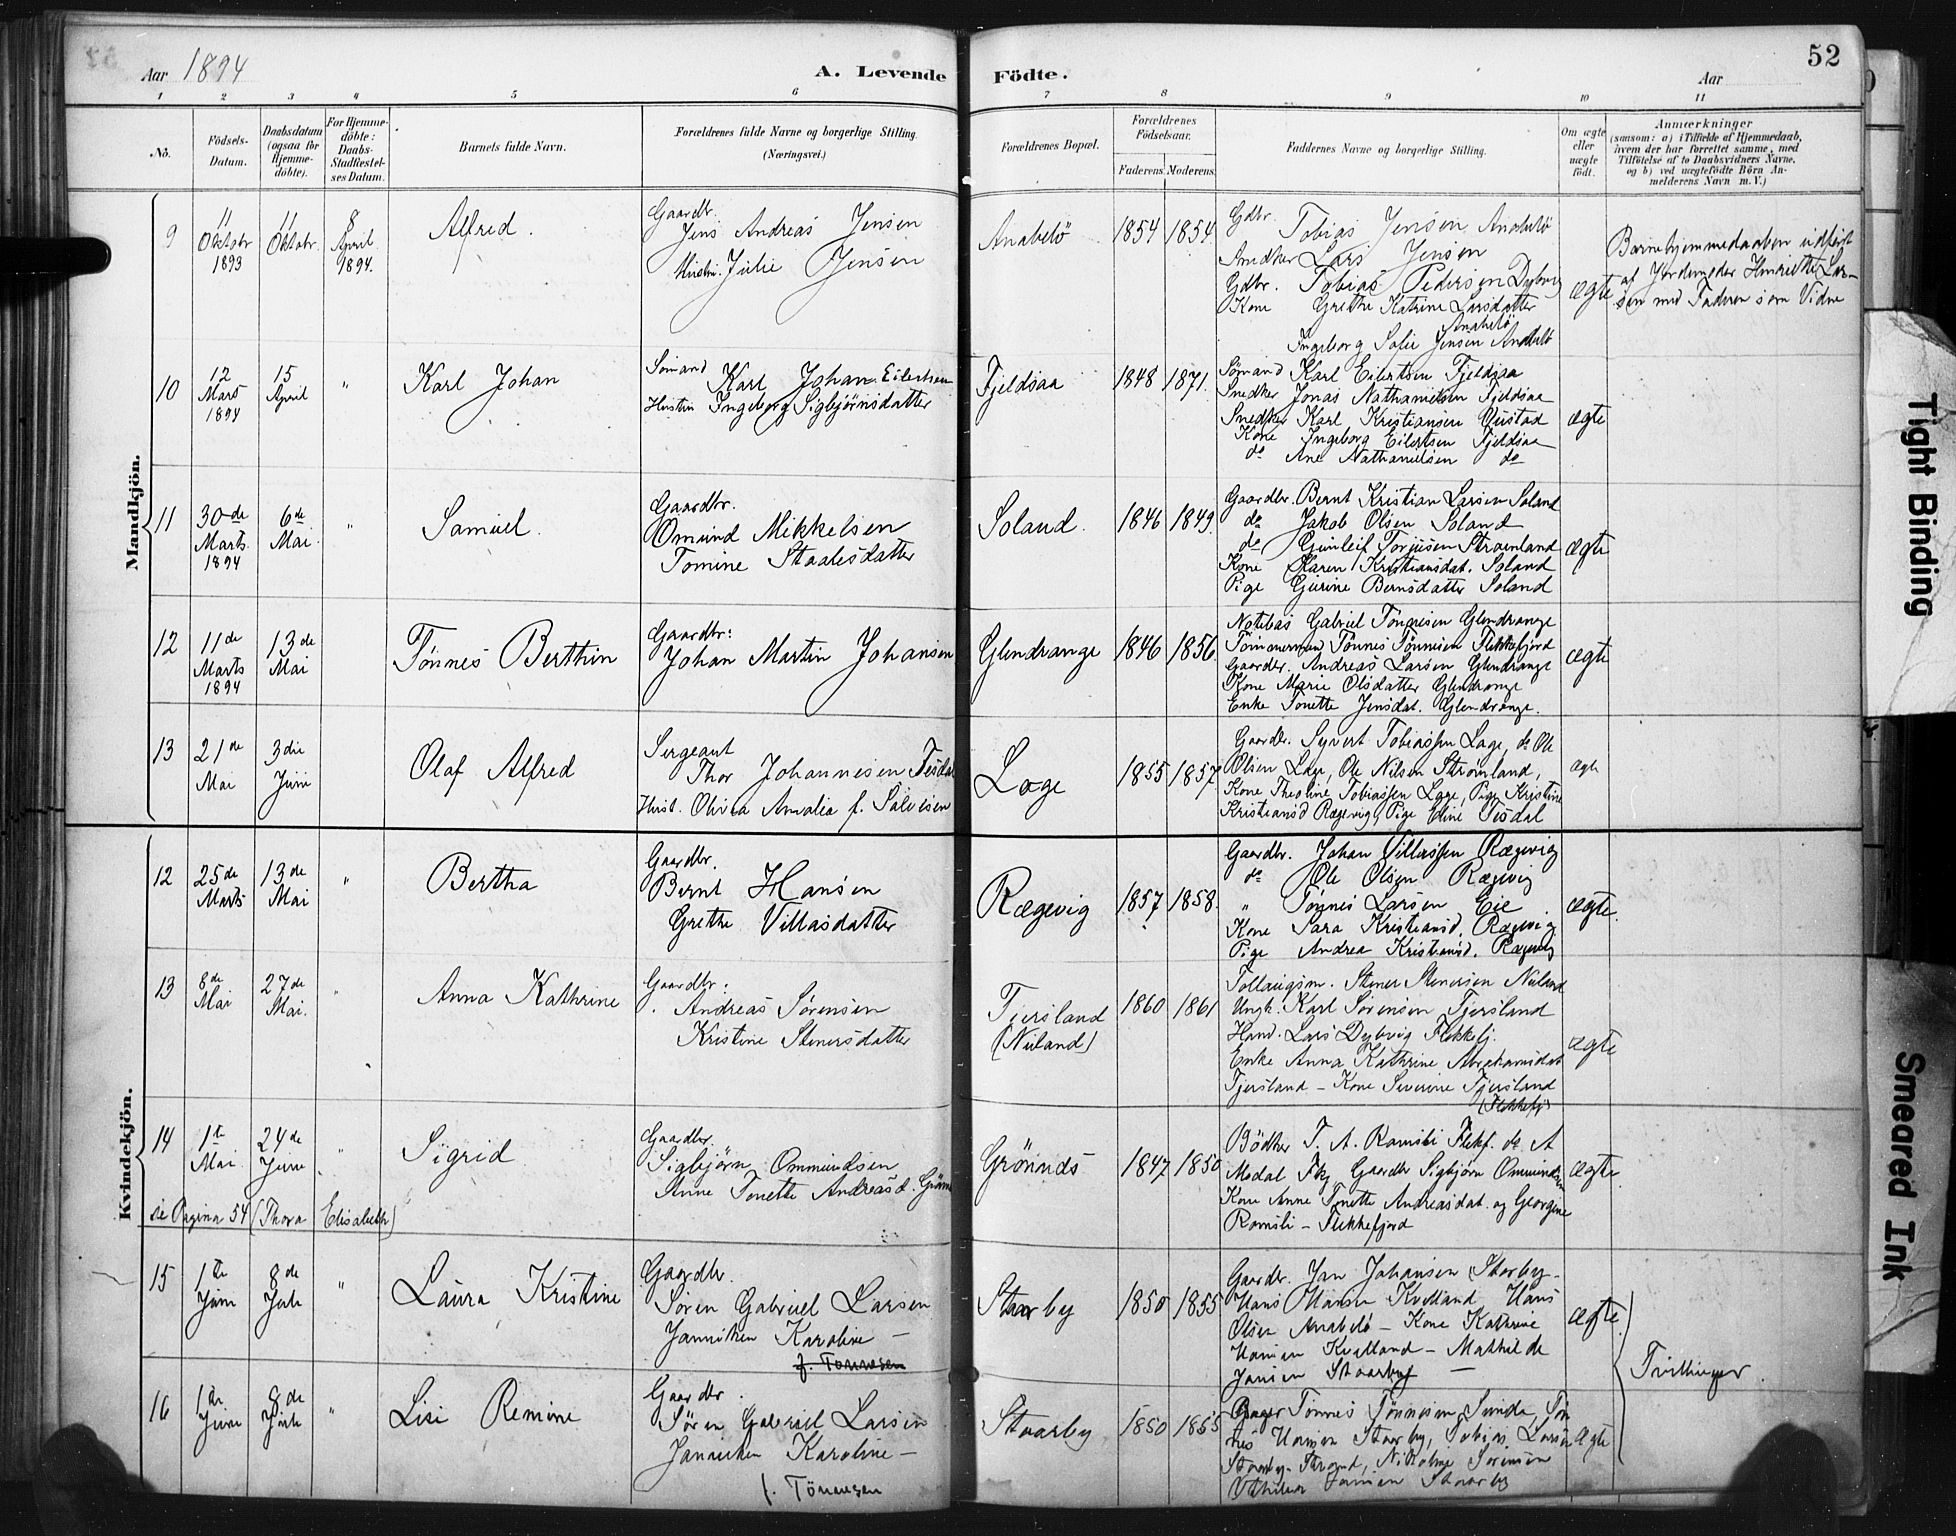 52
Aar 1894
A. Levende Fødte.
Aar
1 2 3 4 5 6 7 8 9 10 11
No.
Födsels-Datum.
Daabsdatum (ogsaa for Hjemmedöbte).
For Hjemmedöbte: Daabs-Stadfæstelses Datum.
Barnets fulde Navn.
Forældrenes fulde Navne og borgerlige Stilling. (Næringsvei.)
Forældrenes Bopæl.
Forældrenes Födselsaar.
Faderens Moderens
Faddernes Navne og borgerlige Stilling.
Om ægte eller uægte født.
Anmærkninger
(saasom: a) i Tilfælde af Hjemmedaab, hvem der har forrettet samme, med Tilföielse af to Daabsvidners Navne, og b) ved uægtefödte Börn Anmelderens Navn m. V.)
Mandkjön.
9
11 Oktobr 1893
11 Oktobr.
8 April 1894.
Alfred.
Gaardbr.
Jens Andreas Jensen
Hustru. Julie Jensen
Anabelö
1854 1854
Gdbr. Tobias Jensen Anabelö
Snedker Lars Jensen
Gdbr. Tobias Pedersen Dybvig
Kone Grethe Katrine Larsdatter
Anabelö
Ingeborg Sofie Jensen Anabelö
ægte
Barnehjemmedaaben udført
af Jordemoder Henriette Lar-
sen med Faderen som Vidne
10
12 Mars 1894
15 April
"
Karl Johan
Sömand Karl Johan Eilertsen
Hustru Ingeborg Sigbjörnsdatter
Fjeldsaa
1848 1871.
Sömand Karl Eilertsen Fjeldsaa
Snedker Jonas Nathanielsen Fjeldsaa
Snedker Karl Kristiansen
Kone Ingeborg Eilertsen Fjeldsaa
do Ane Nathanielsen do
ægte
11
30de Marts 1894
6de Mai
"
Samuel.
Gaardbr.
Omund Mikkelsen
Tomine Staalesdatter
Soland.
1846 1849.
Gaardbr. Bernt Kristian Larsen Soland
do Jakob Olsen Soland
do Gunleif Torjusen Strømland
Kone Karen Kristiansdat. Soland
Pige Gurine Berntsdatter Soland
ægte
12
11de Marts 1894
13de Mai
Tönnes Berthin
Gaardbr:
Johan Martin Johansen
Glendrange
1846 1856
Notebas Gabriel Tönnesen Glendrange
Tömmermand Tönnes Tönnesen Flekkefjord
Gaardbr. Andreas Larsen Glendrange
Kone Marie Olsdatter Glendrange
Enke Tonette Jensdat. Glendrange.
ægte
13
21de Mai
3die Juni
Olaf Alfred
Sergeant
Thor Johannesen Tesdal
Hust. Olivia Amalia f. Salvesen
Loge
1855 1857
Gaardbr. Syvert Tobiassen Loge, do Ole
Olsen Loge, Ole Nilsen Strømland,
Kone Theoline Tobiassen Loge, Pige Kristine
Kristiansd Rægevig, Pige Eline Tesdal
ægte
Kvindekjön.
12
25de Marts
13de Mai
"
Bertha
Gaardbr.
Bernt Hansen
Grethe Villasdatter
Rægevig
1857 1858.
Gaardbr. Johan Villassen Rægevig
do Ole Olsen Rægevig
" Tönnes Larsen Eie
Kone Sara Kristiansd. Rægevig
Pige Andrea Kristiansd. Rægevig
ægte.
13
8de Mai
27de Mai.
"
Anna Kathrine
Gaardbr.
Andreas Sørensen
Kristine Stenersdatter
Tjersland
(Nuland)
1860 1861
Stener Stenersen Nuland
Ungk. Karl Sørensen Tjersland
Hand. Lars Dybvig Flekkefj.
Enke Anna Kathrine Abrahamsdat
Tjersland – Kone Severine Tjersland
(Flekkefj)
ægte
14
1te Mai
24de Juni
"
Sigrid
Gaardbr.
Sigbjörn Ommundsen
Anne Tonette Andreasd.
Grönnds
1847 1850
Bödker T. A. Ramsli Flekf. do A
Modal Fkj Gaardbr Sigbjörn Ommundsen
Kone Anne Tonette Andreasdat. og Georgine
Ramsli – Flekkefjord
ægte.
se Pagina 54 (Thora Elisabeth)
15
1te Juni
8de Juli
"
Laura Kristine
Gaardbr.
Sören Gabriel Larsen
Janniken Karoline –
f. Tönnesen
Staarby
1850 1855
Gaardbr. Jan Johansen Staarby –
Hans Hansen Kvelland Hans
Olsen Anabelö – Kone Kathrine
Hansen Kvelland – Mathilde
Jansen Staarby –
ægte
Tvillinger
16
1te Juni
8de Juli
"
Lisi Remine
Gaardbr.
Sören Gabriel Larsen
Janniken Karoline –
f. Tönnesen
Staarby
1850 1855
Tönnes Tönnesen Sunde, Tön
nes Hansen Staarby, Tobias Larsen
Staarby – Strand, Nikoline Sørensen
Jansen Staarby
ægte
Tight Binding
Smeared Ink